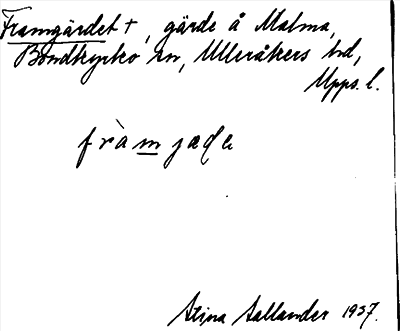 Framgärdet +, gärde å Malma,
Bondkyrko sn, Ulleråkers hd,
Upps. l.
fràmjæḍe
Stina Sallander 1937.